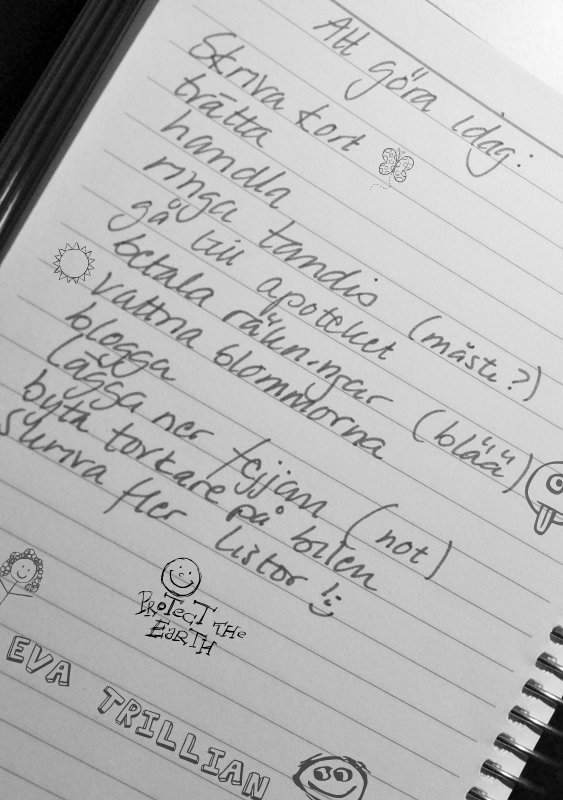 Att göra idag:
Skriva kort
tvätta
handla
ringa tandis (måste?)
gå till apoteket
betala räkningar (blääää)
vattna blommorna
blogga
lägga ner fejjan (not)
byta torkare på bilen
skriva fler listor!
PROTECT THE
EARTH
EVA TRILLIAN